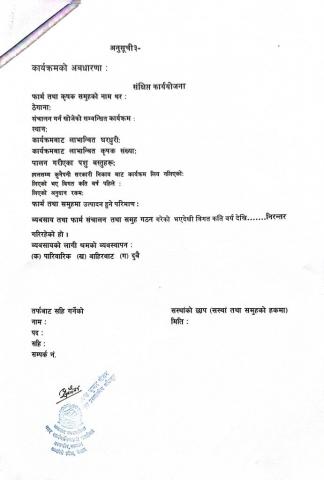 अनुसूची३-
कार्यक्रमको अवधारणा :
संक्षिप्त कार्ययोजना
फार्म तथा कृषक समुहको नाम थर :
ठेगाना:
संचालन गर्न खोजेको सम्बन्धित कार्यक्रम :
स्थान:
कार्यक्रमबाट लाभान्वित घरधुरी:
कार्यक्रमबाट लाभान्वित कृषक संख्या:
पालन गरीएका पशु बस्तुहरू:
सरकारी निकाय बाट कार्यक्रम लिए नलिएको:
लिएको भए विगत कति वर्ष पहिले :
लिएको अनुदान रकम:
फार्म तथा समुहमा उत्पादन हुने परिमाण :
ब्यवसाय तथा फार्म संचालन तथा समुह गठन गरेको भएदेखी विगत कति वर्ष देखि.......निरन्तर
गरिरहेको हो ।
ब्यवसायको लागी श्रमको ब्यवस्थापन :
(क) पारिवारिक (ख) बाहिरबाट (ग) दुबै
तर्फबाट सहि गर्नेको
नाम :
पद :
सहि :
सम्पर्क नं.
सस्थांको छाप (सस्थां तथा समुहको हकमा)
मिति :